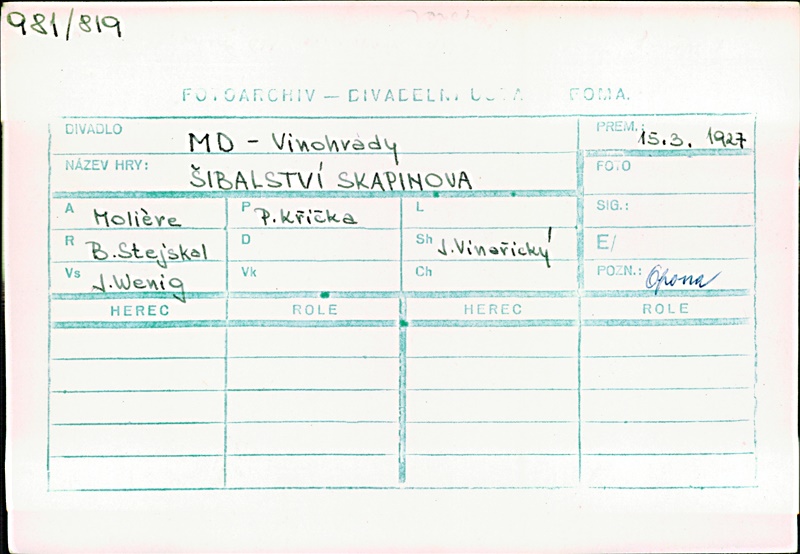 981/819
FOTOARCHIV – DIVADELNÍ
DIVADLO MD - Vinohrady PREM.: 15.3. 1927
NÁZEV HRY: ŠIBALSTVÍ SKAPINOVA FOTO
A Molière P P. Křička L SIG.:
R B. Stejskal D Sh J. Vinařický E/
Vs J. Wenig Vk Ch POZN.: Opona
HEREC ROLE HEREC ROLE